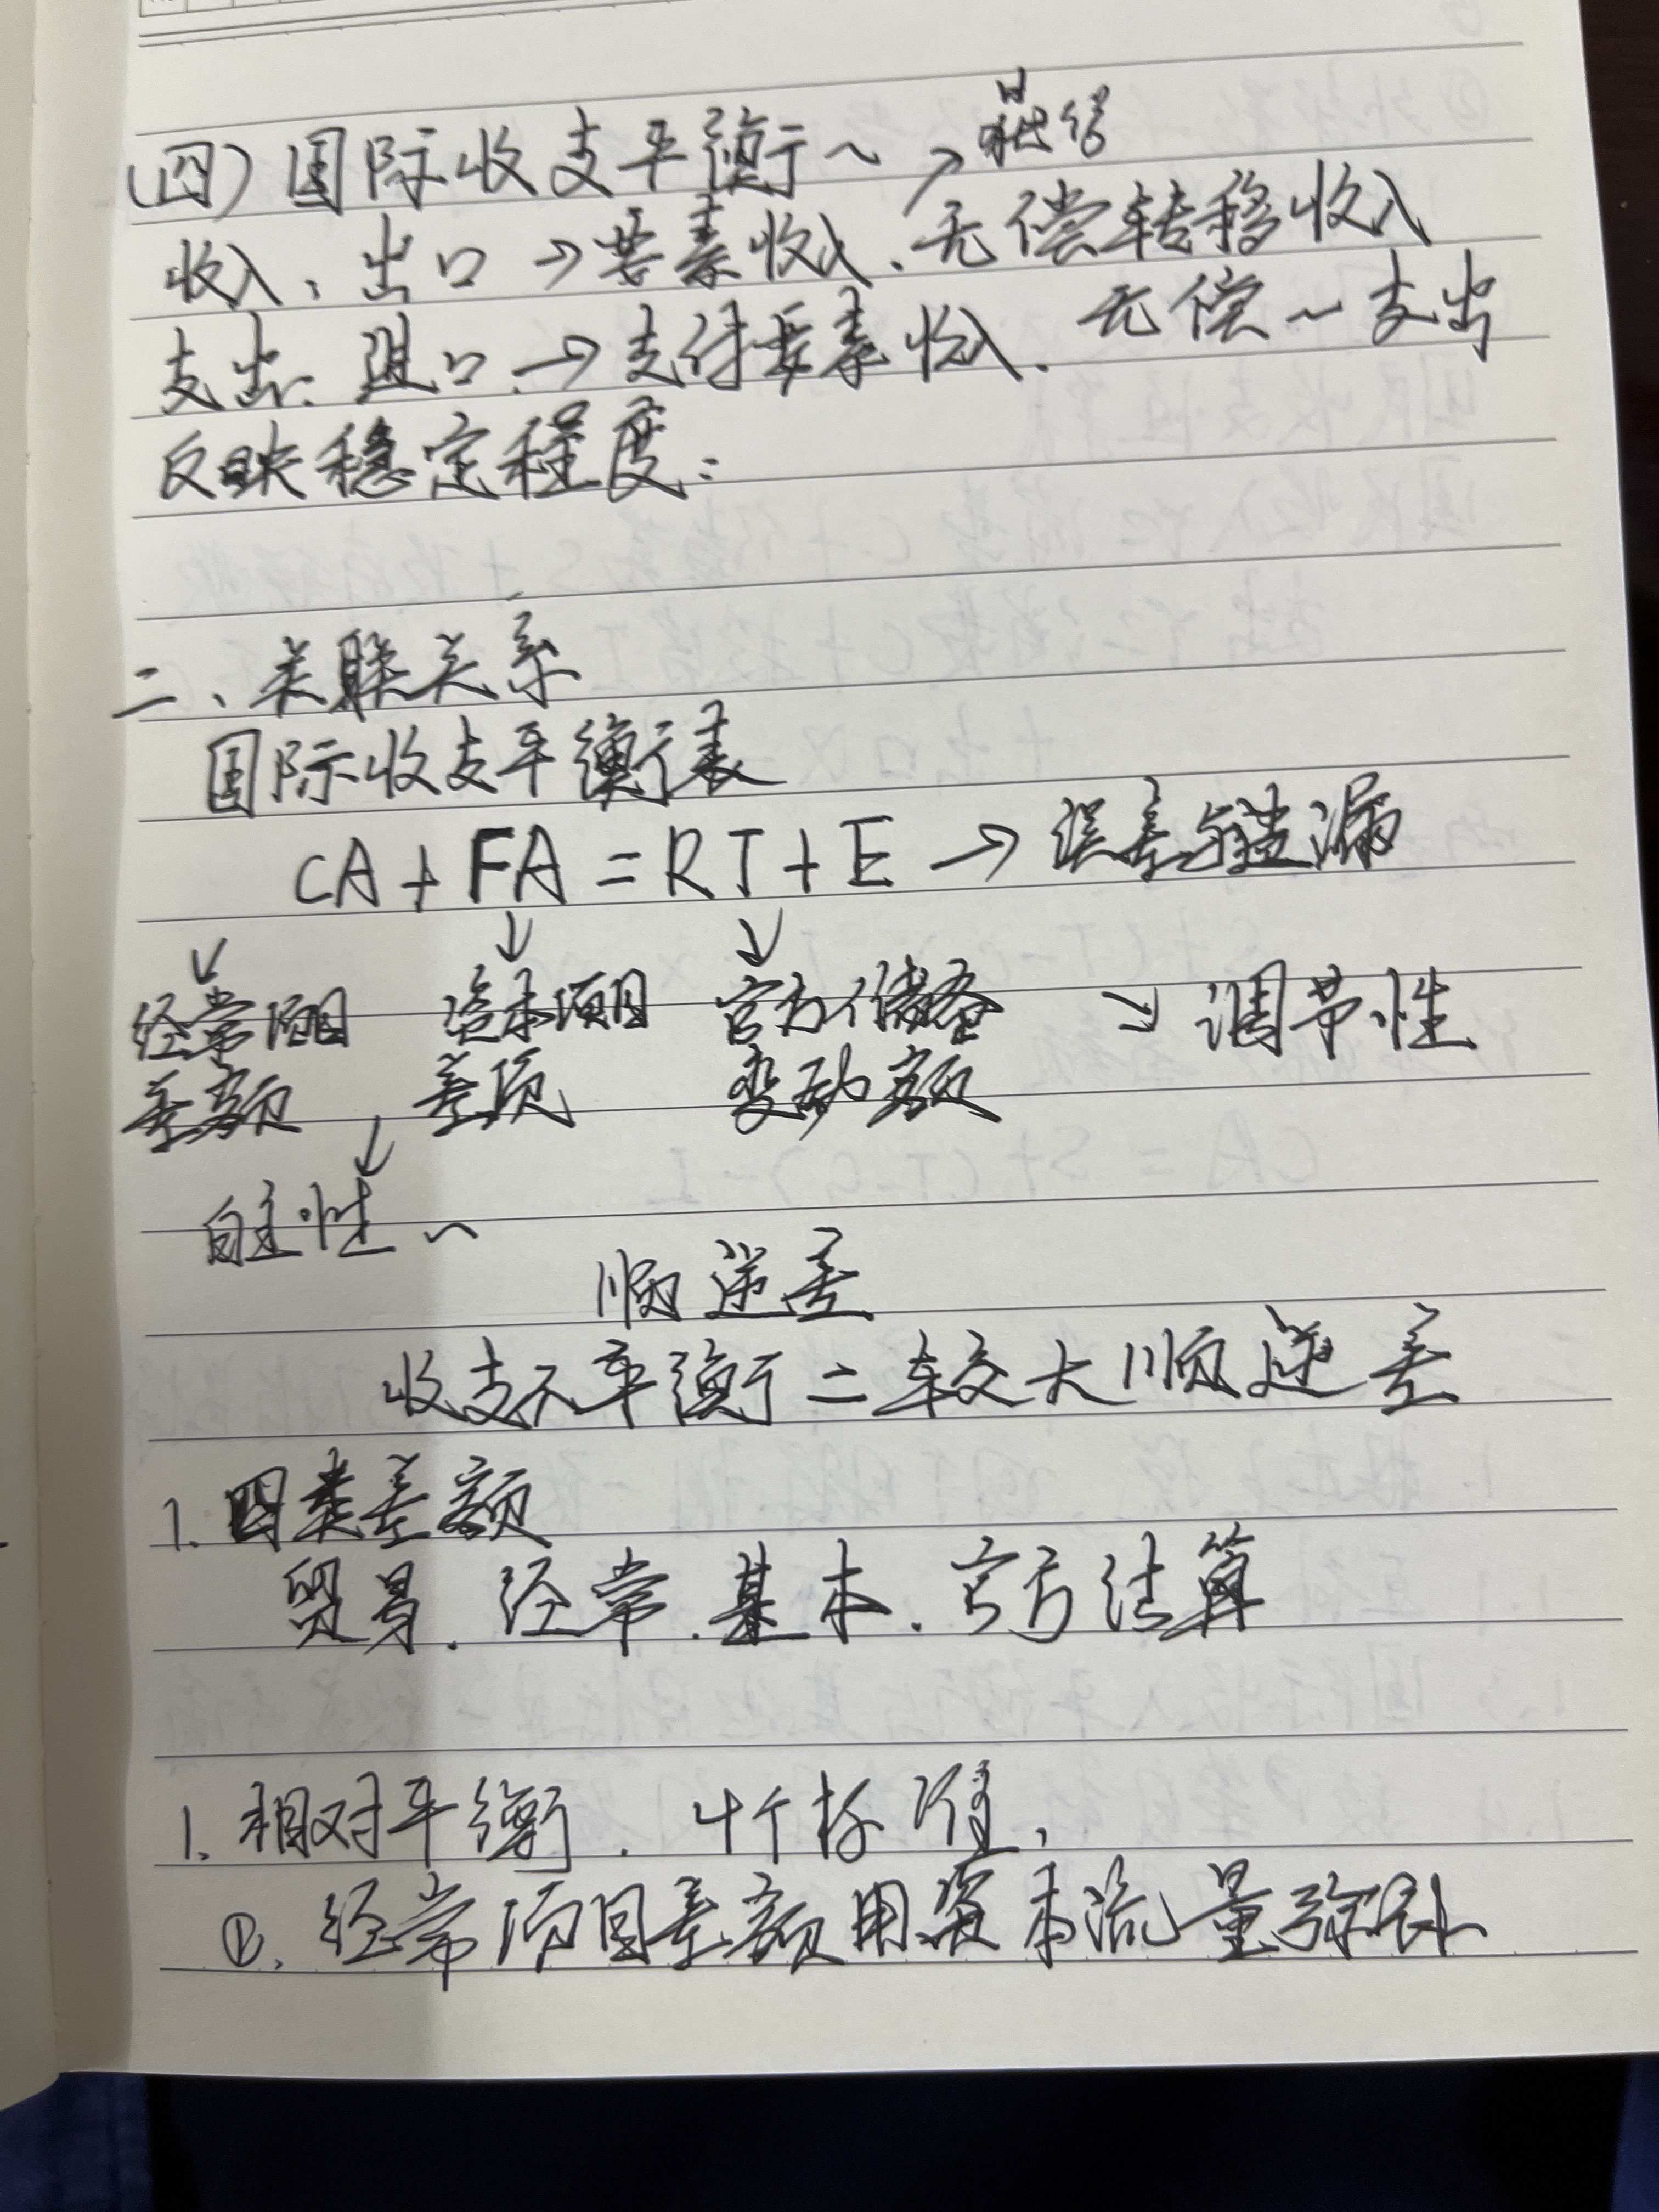 (四)国际收支平衡~
收入:出口→要素收入、无偿转移收入
支出:进口→支付要素收入、无偿~支出
反映稳定程度:
二、关联关系
国际收支平衡表
CA+FA=RT+E→误差与遗漏
↓ ↓ ↓
经常项目 资本项目 官方储备 ↘调节性
差额 差项 变动额
↓
自主性~
顺逆差
收支不平衡=较大顺逆差
1.四类差额
贸易.经常.基本.官方结算
1.相对平衡.4个标准,
①.经常项目差额用资本流量弥补